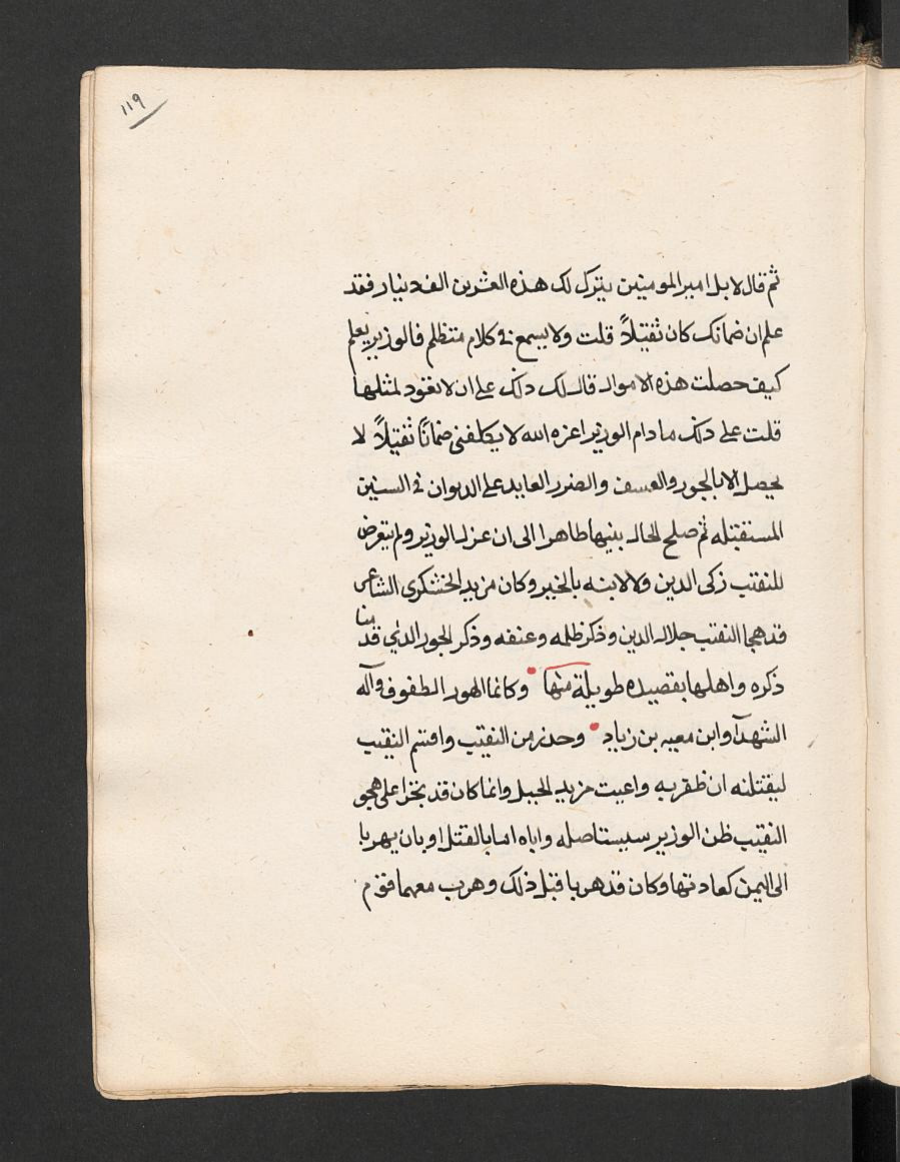 ١١٩
ثم قال لا بل امير المومنين يترك لك هذه العشرين الف دينار فقد
علم ان ضمانك كان ثقيلاً قلت ولا يسمع في كلام متظلم فالوزير يعلم
كيف حصلت هذه الاموال قال لك ذلك على ان لا تعود لمثلها
قلت على ذلك ما دام الوزير اعزه الله لا يكلفنى ضمانًا ثقيلاً لا
يحصل الا بالجور والعسف والضرر العايد على الديوان في السنين
المستقبله ثم صلح الحال بينهما ظاهرا الى ان عزل الوزير ولم يتعرض
للنقيب زكى الدين ولا لابنه بالخير وكان مزيد الخشكرى الشاعر
قد هجا النقيب جلال الدين وذكر ظلمه وعنفه وذكر الجور الذي قدمنا
ذكره واهلها بقصيده طويلة منها وكانما الهور الطفوف وآله
الشهدآ وابن معيه بن زياد وحذر من النقيب واقسم النقيب
ليقتلنه ان ظفر به واعيت مزيد الحيل وانما كان قد تجرا على هجو
النقيب ظن الوزير سيستاصله واياه اما بالقتل او بان يهربا
الى اليمن كعادتها وكان قد هربا قبل ذلك وهرب معهما قوم